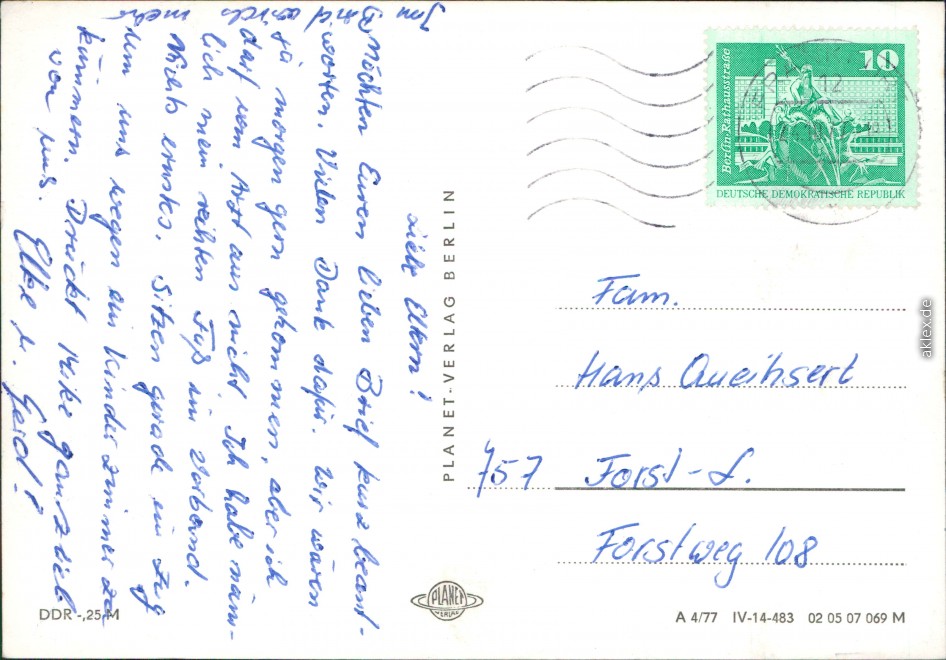 Liebe Eltern!
Möchten Euren lieben Brief kurz beant-
worten. Vielen Dank dafür. Wir wären
ja morgen gern gekommen, aber ich
darf vom Arzt aus nicht. Ich habe näm-
lich mein rechten Fuß im Verband.
Nichts ernstes. Sitzen gerade im Zug
um uns wegen ein Kinderzimmer zu
kümmern. Drückt Mike ganz lieb
von uns. Elke u. Gerd
Im
wirds mehr
PLANET-VERLAG BERLIN
10
Berlin-Rathausstraße
DEUTSCHE DEMOKRATISCHE REPUBLIK
12
Fam.
Hans Queihsert
757 Forst-L.
Forstweg 108
DDR -,25 M
PLANET
VERLAG
A 4/77 IV-14-483 02 05 07 069 M
aklex.de